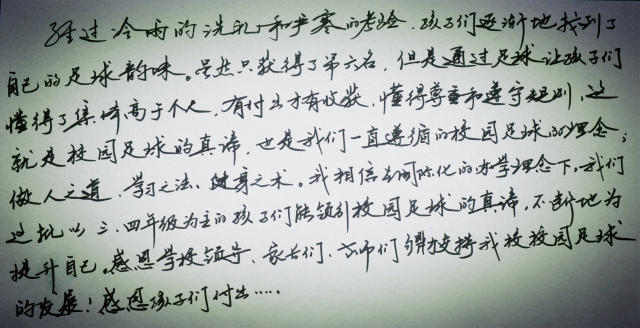 经过冷雨的洗礼和严寒的考验，孩子们逐渐地找到了
自己的足球韵味。虽然只获得了第六名，但是通过足球让孩子们
懂得了集体高于个人，有付出才有收获，懂得尊重和遵守规则，这
就是校园足球的真谛，也是我们一直遵循的校园足球的理念；
做人之道、学习之法、健身之术。我相信在国际化的办学理念下，我们
这批以三、四年级为主的孩子们能领引校园足球的真谛，不断地为
提升自己。感恩学校领导、家长们、老师们鼎力支持我校校园足球
的发展！感恩孩子们付出……